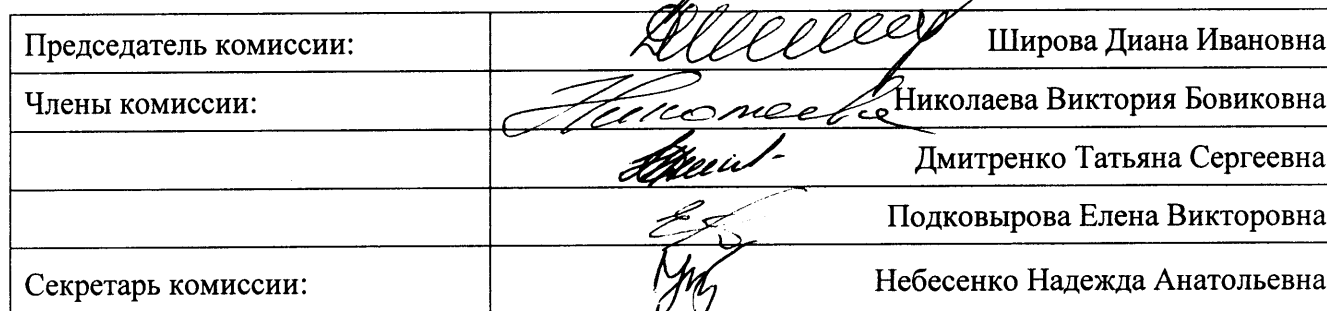 Председатель комиссии: Широва Диана Ивановна
Члены комиссии: Николаева Николаева Виктория Бовиковна
Дмитренко Татьяна Сергеевна
Подковырова Елена Викторовна
Секретарь комиссии: Небесенко Надежда Анатольевна